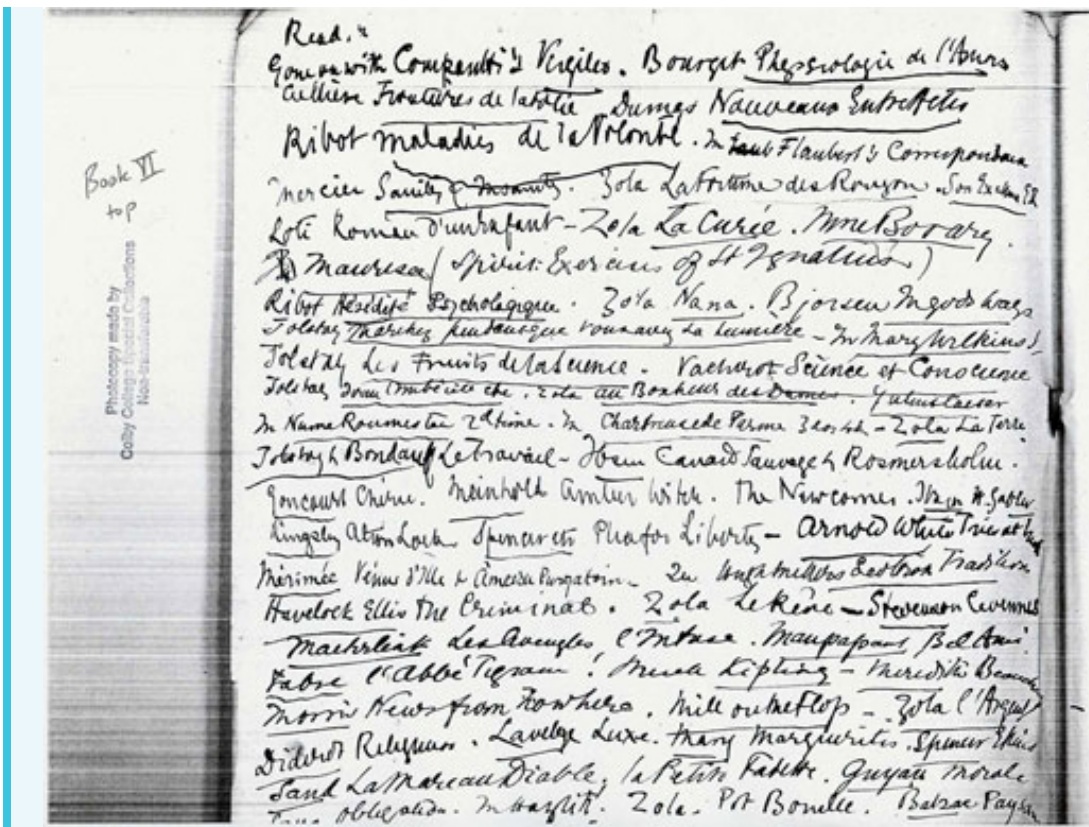 Book VI
top
Photocopy made by
Colby College Special Collections
Non-transferable
Read.
Gone on with Comparetti's Virgileo. Bourget Physiologie de l'Amour
Cullerre Frontières de la folie Dumas Nouveaux Entractes
Ribot maladies de la Volonté. In Flaubert's Correspondance
Mercier Sanity & Insanity. Zola La Fortune des Rougon. Son Exc
Loti Roman d'un Enfant - Zola La Curée. Mme Bovary.
(Spirit: Exercises of St Ignatius)
Ribot Hérédité Psychologique. Zola Nana. Bjornsen In gods ways
Tolstoy Marchez pendant que vous avez la lumière - In Mary Wilkins
Tolstoy Les Fruits de la Science. Vacherot Science et Conscience
Tolstoy Zola Au Bonheur des Dames. Julius Caesar
In Numa Roumestan 2d time. In Chartreuse de Parme 3 or 4th - Zola La Terre.
Tolstoy & Bondareff Le travail - Ibsen Canard Sauvage & Rosmersholm.
Goncourt Cherie. Meinhold Amber Witch. The Newcomes. Ibsen H. Gabler
Kingsley Alton Locke Spencer etc Plea for Liberty - Arnold White Tries at
Mérimée Vénus d'Ille & Ames du Purgatoire - Hugh Millers Scotch Tradition
Havelock Ellis The Criminal. Zola Le Rêve - Stevenson Cevennes
Maeterlink Les Aveugles, l'Intuse. Maupassant Bel Ami.
Fabre l'Abbé Tigrane. Much Kipling - Meredith Beauchamp
Morris News from Nowhere. Mill on the Flop - Zola l'Argent
Diderot Religieuse. Laveleye Luxe. Many Marguerites. Spencer
Sand La Mare au Diable, la Petite Fadette. Guyau Morale
obligation. In Hazlitt. Zola. Pot Bouille. Balzac Paysans